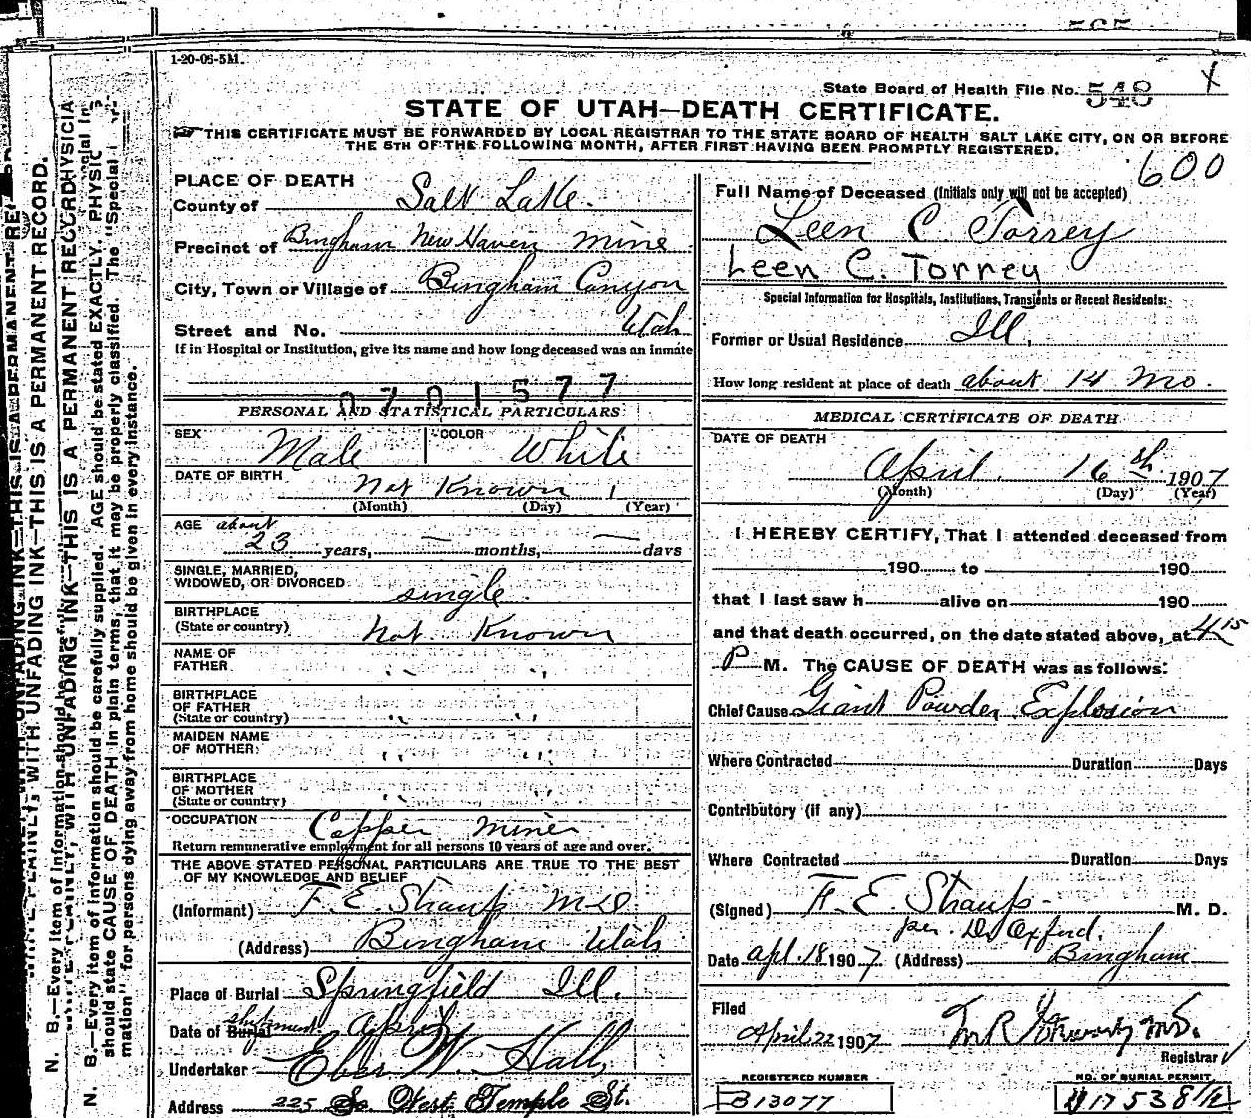 1-20-06-5M.
State Board of Health File No. 548
STATE OF UTAH—DEATH CERTIFICATE.
THIS CERTIFICATE MUST BE FORWARDED BY LOCAL REGISTRAR TO THE STATE BOARD OF HEALTH SALT LAKE CITY, ON OR BEFORE
THE 5TH OF THE FOLLOWING MONTH, AFTER FIRST HAVING BEEN PROMPTLY REGISTERED.
600
PLACE OF DEATH
County of Salt Lake.
Precinct of Bingham New Haven mine
City, Town or Village of Bingham Canyon
Utah
Street and No.
If in Hospital or Institution, give its name and how long deceased was an inmate
0701577
PERSONAL AND STATISTICAL PARTICULARS
SEX Male COLOR White
DATE OF BIRTH not Known
(Month) (Day) (Year)
AGE about
23 years, — months, — days
SINGLE, MARRIED,
WIDOWED, OR DIVORCED single.
BIRTHPLACE
(State or country) not Known
NAME OF
FATHER " "
BIRTHPLACE
OF FATHER
(State or country) " "
MAIDEN NAME
OF MOTHER " "
BIRTHPLACE
OF MOTHER
(State or country) " "
OCCUPATION Copper miner
Return remunerative employment for all persons 10 years of age and over.
THE ABOVE STATED PERSONAL PARTICULARS ARE TRUE TO THE BEST
OF MY KNOWLEDGE AND BELIEF
(Informant) F. E. Straup M D
(Address) Bingham Utah
Place of Burial Springfield Ill.
Date of Burial shipment April
Undertaker Eber W. Hall
Address 225 So. West Temple St.
Full Name of Deceased (Initials only will not be accepted)
Leen C. Torrey
Leen C. Torrey
Special Information for Hospitals, Institutions, Transients or Recent Residents:
Former or Usual Residence Ill.
How long resident at place of death about 14 mo.
MEDICAL CERTIFICATE OF DEATH
DATE OF DEATH
April 16th 1907
(Month) (Day) (Year)
I HEREBY CERTIFY, That I attended deceased from
190 to 190
that I last saw h alive on 190
and that death occurred, on the date stated above, at 4 15
P M. The CAUSE OF DEATH was as follows:
Chief Cause Giant Powder Explosion
Where Contracted Duration Days
Contributory (if any)
Where Contracted Duration Days
(Signed) F. E. Straup M. D.
per. Dr Oxford.
Date Apl. 18 1907 (Address) Bingham
Filed
April 22 1907
Registrar
REGISTERED NUMBER
B13077
NO. OF BURIAL PERMIT
N. B.—Every item of information should be carefully supplied. AGE should be stated EXACTLY. PHYSIC
should state CAUSE OF DEATH in plain terms, that it may be properly classified. The "Special In-
mation" for persons dying away from home should be given in every instance.
WITH UNFADING INK—THIS IS A PERMANENT RECORD.